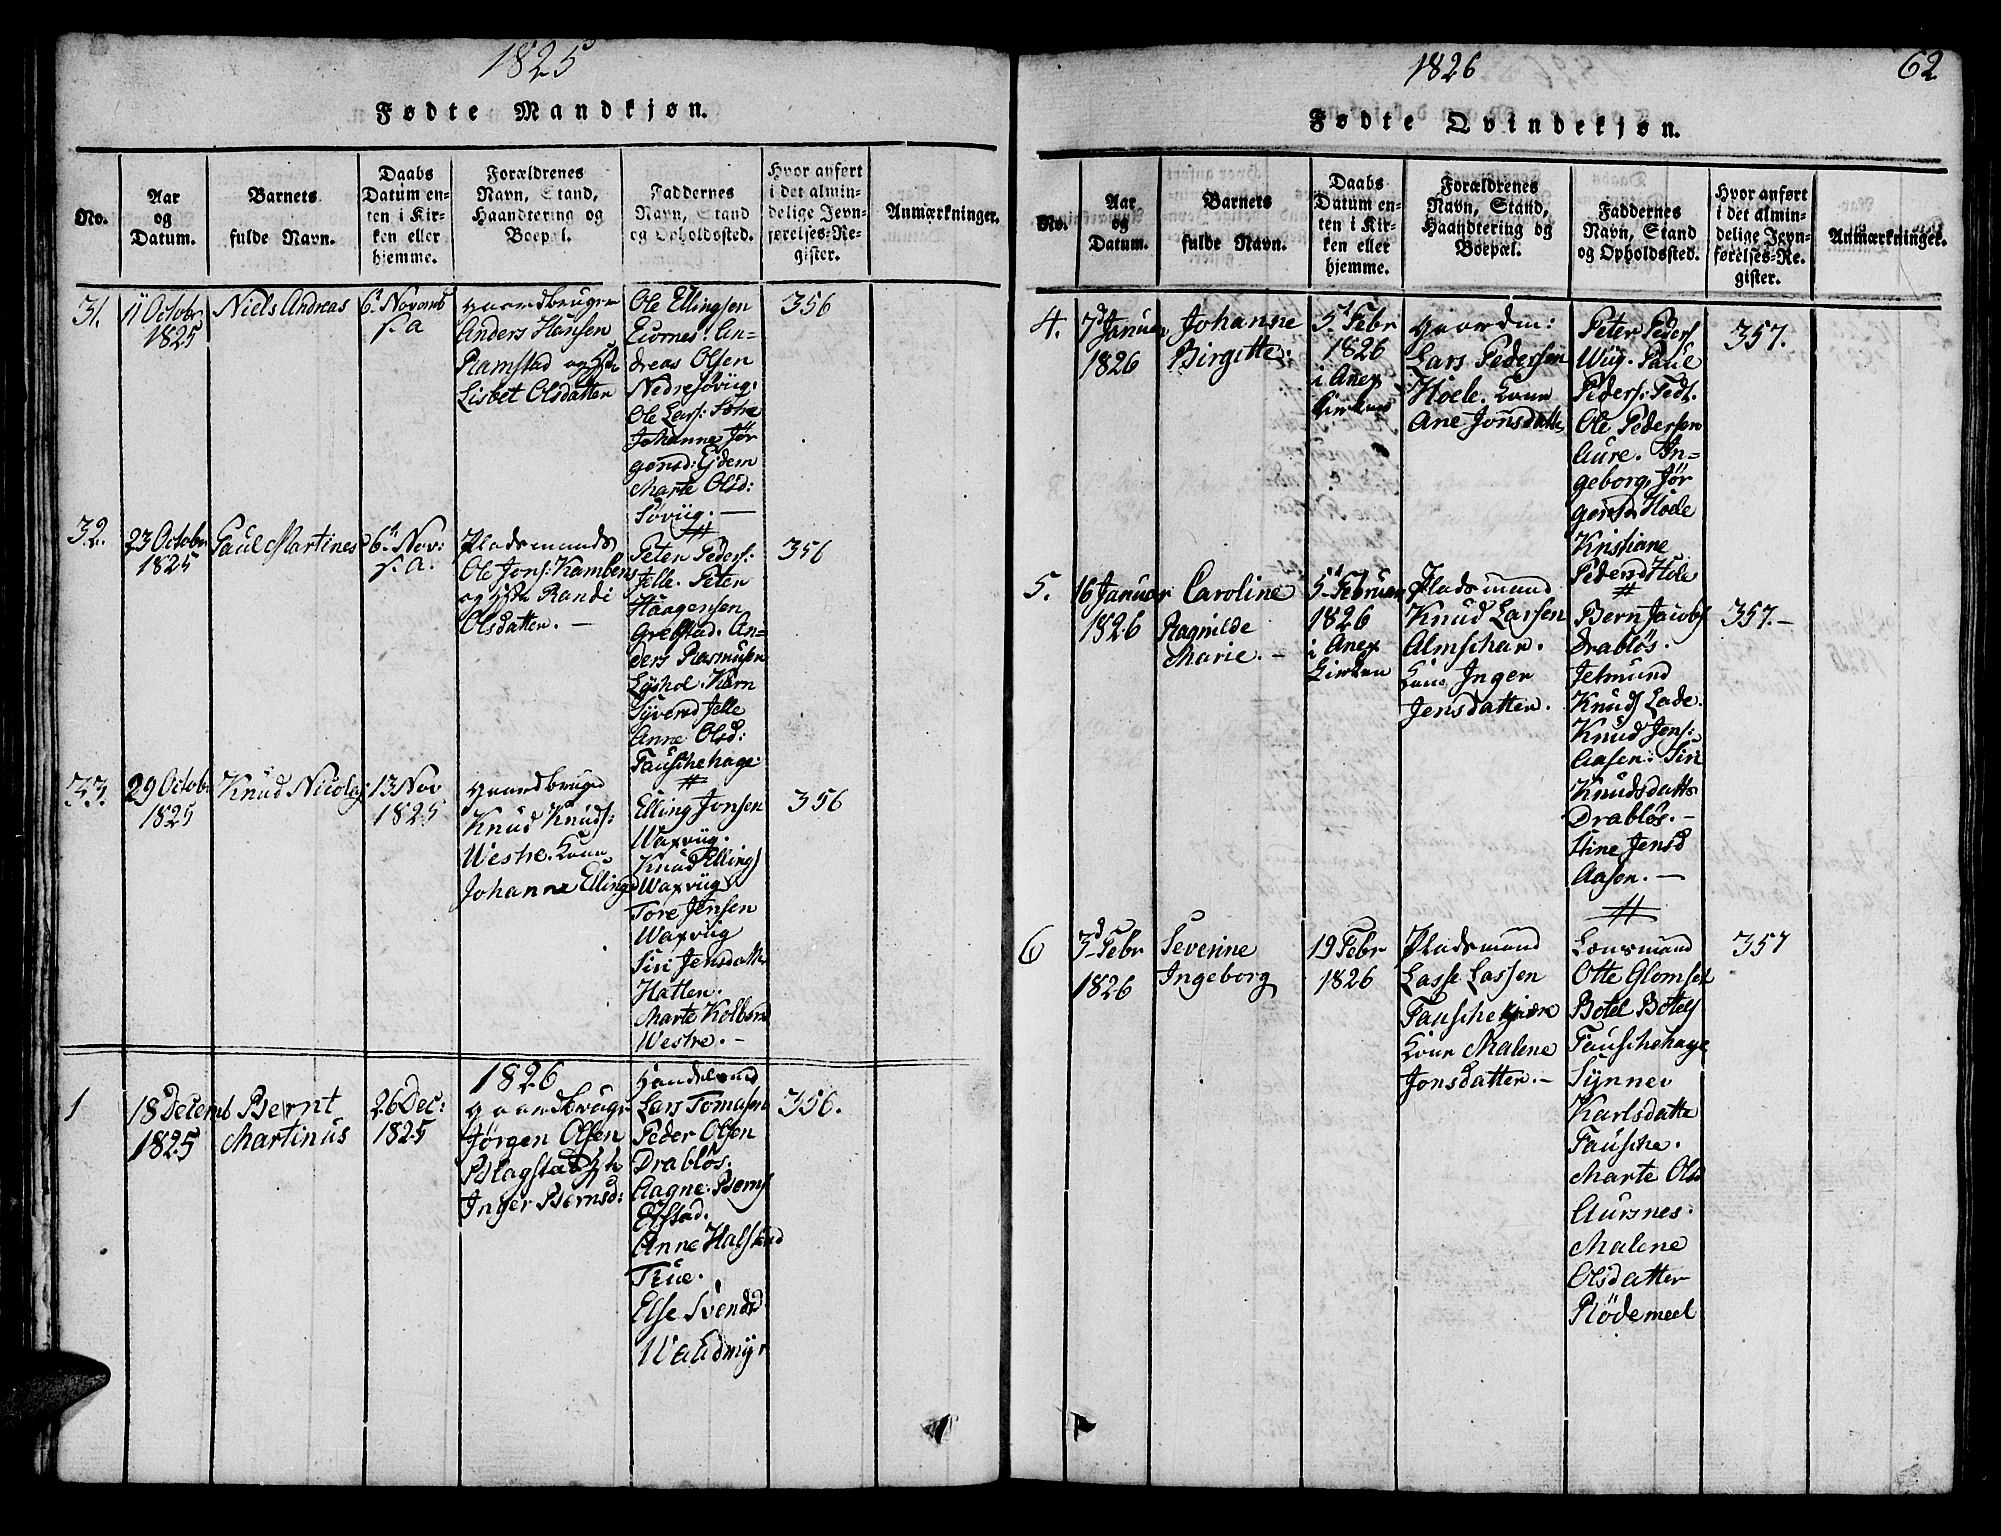 1825
Fødte Mandkjøn.
No.
Aar
og
Datum.
Barnets
fulde Navn.
Daabs
Datum en-
ten i Kir-
ken eller
hjemme.
Forældrenes
Navn, Stand,
Haandtering og
Boepæl.
Faddernes
Navn, Stand
og Opholdssted.
Hvor anført
i det almin-
delige Jevn-
førelses-Re-
gister.
Anmærkninger.
31.
11 Octobr
1825
Niels Andreas
6 Novemb
s. a
gaardbruger
Anders Hansen
Ramstad og Hst
Lisbet Olsdatter
Ole Ellingsen
Eiornes. An-
dreas Olsen
Nedresøviig:
Ole Lars: Sætre
Johanne Jør
gensd: Ejdem
Marte Olsd:
Søviig. —
356
32.
23 Octobr
1825
Paul Martines
6 Nov:
s. a.
Pladsmand
Ole Jons: Kambens
og Hst Randi
Olsdatter. —
Peter Peders:
Jelle. Peter
Haagensen
Grebstad. An-
ders Rasmusen
Lyshol. Karn
Syversd Jelle
Anne Olsd:
Fauschehage:
356
33.
29 Octobr
1825
Knud Nicolay
13 Nov
1825
gaardbruger
Knud Knuds:
Westre. Kone
Johanne Ellingsd
Elling Jonsen
Waxviig.
Knud Ellings
Waxviig
Tore Jensen
Waxviig
Siri Jensdatt
Hatlen.
Marte Kolbens
Westre. —
356
1826
1
18 Decemb
1825
Bernt
Martinus
26 Dec:
1825
gaardbruger
Jørgen Olsen
Blagstad Hst
Inger Bernsd:
Handelsmd
Lars Tomasen
Peder Olsen
Drabløs.
Aagne Berns
Efstad.
Anne Halsted
True.
Else Svendsd
Waldmyr
356.
1826
62
Fødte Qvindekjøn.
No.
Aar
og
Datum.
Barnets
fulde Navn.
Daabs
Datum en-
ten i Kir-
ken eller
hjemme.
Forældrenes
Navn, Stand,
Haandtering og
Boepæl.
Faddernes
Navn, Stand
og Opholdssted.
Hvor anført
i det almin-
delige Jevn-
førelses-Re-
gister.
Anmærkninger.
4.
7d Januar
1826
Johanne
Birgitte.
5d Febr
1826
i Anex
Kirken
gaardm:
Lars Pedersen
Hoele. Kone
Ane Jonsdatt
Peter Peders
Wiig. Paul
Peders: Fedt.
Ole Pedersen
Aure. In-
geborg Jør
gensd Hode
Kristiane
Pedersd Hole
357.
5.
16 Januar
1826
Caroline
Ragnilde
Marie. —
5d Februar
1826
i Anex
Kirken
Pladsmand
Knud Larsen
Almschar.
Kone Inger
Jensdatter.
Bern Jacobs
Drabløs.
Jetmund
Knuds Lade.
Knud Jens:
Aasen: Siri
Knudsdatts
Drabløs. —
Stine Jensd
Aasen. —
357. —
6
3d Febr
1826
Severine
Ingeborg
19 Febr
1826
Pladsmand
Lasse Lassen
Fauschekjære
Kone Malene
Jonsdatter. —
Lensmand
Otte Glomset
Botel Botels
Fauschehage
Synnev
Karlsdatte
Fausche.
Marte Olsd
Aursnes.
Malene
Olsdatter
Rødemeel
357